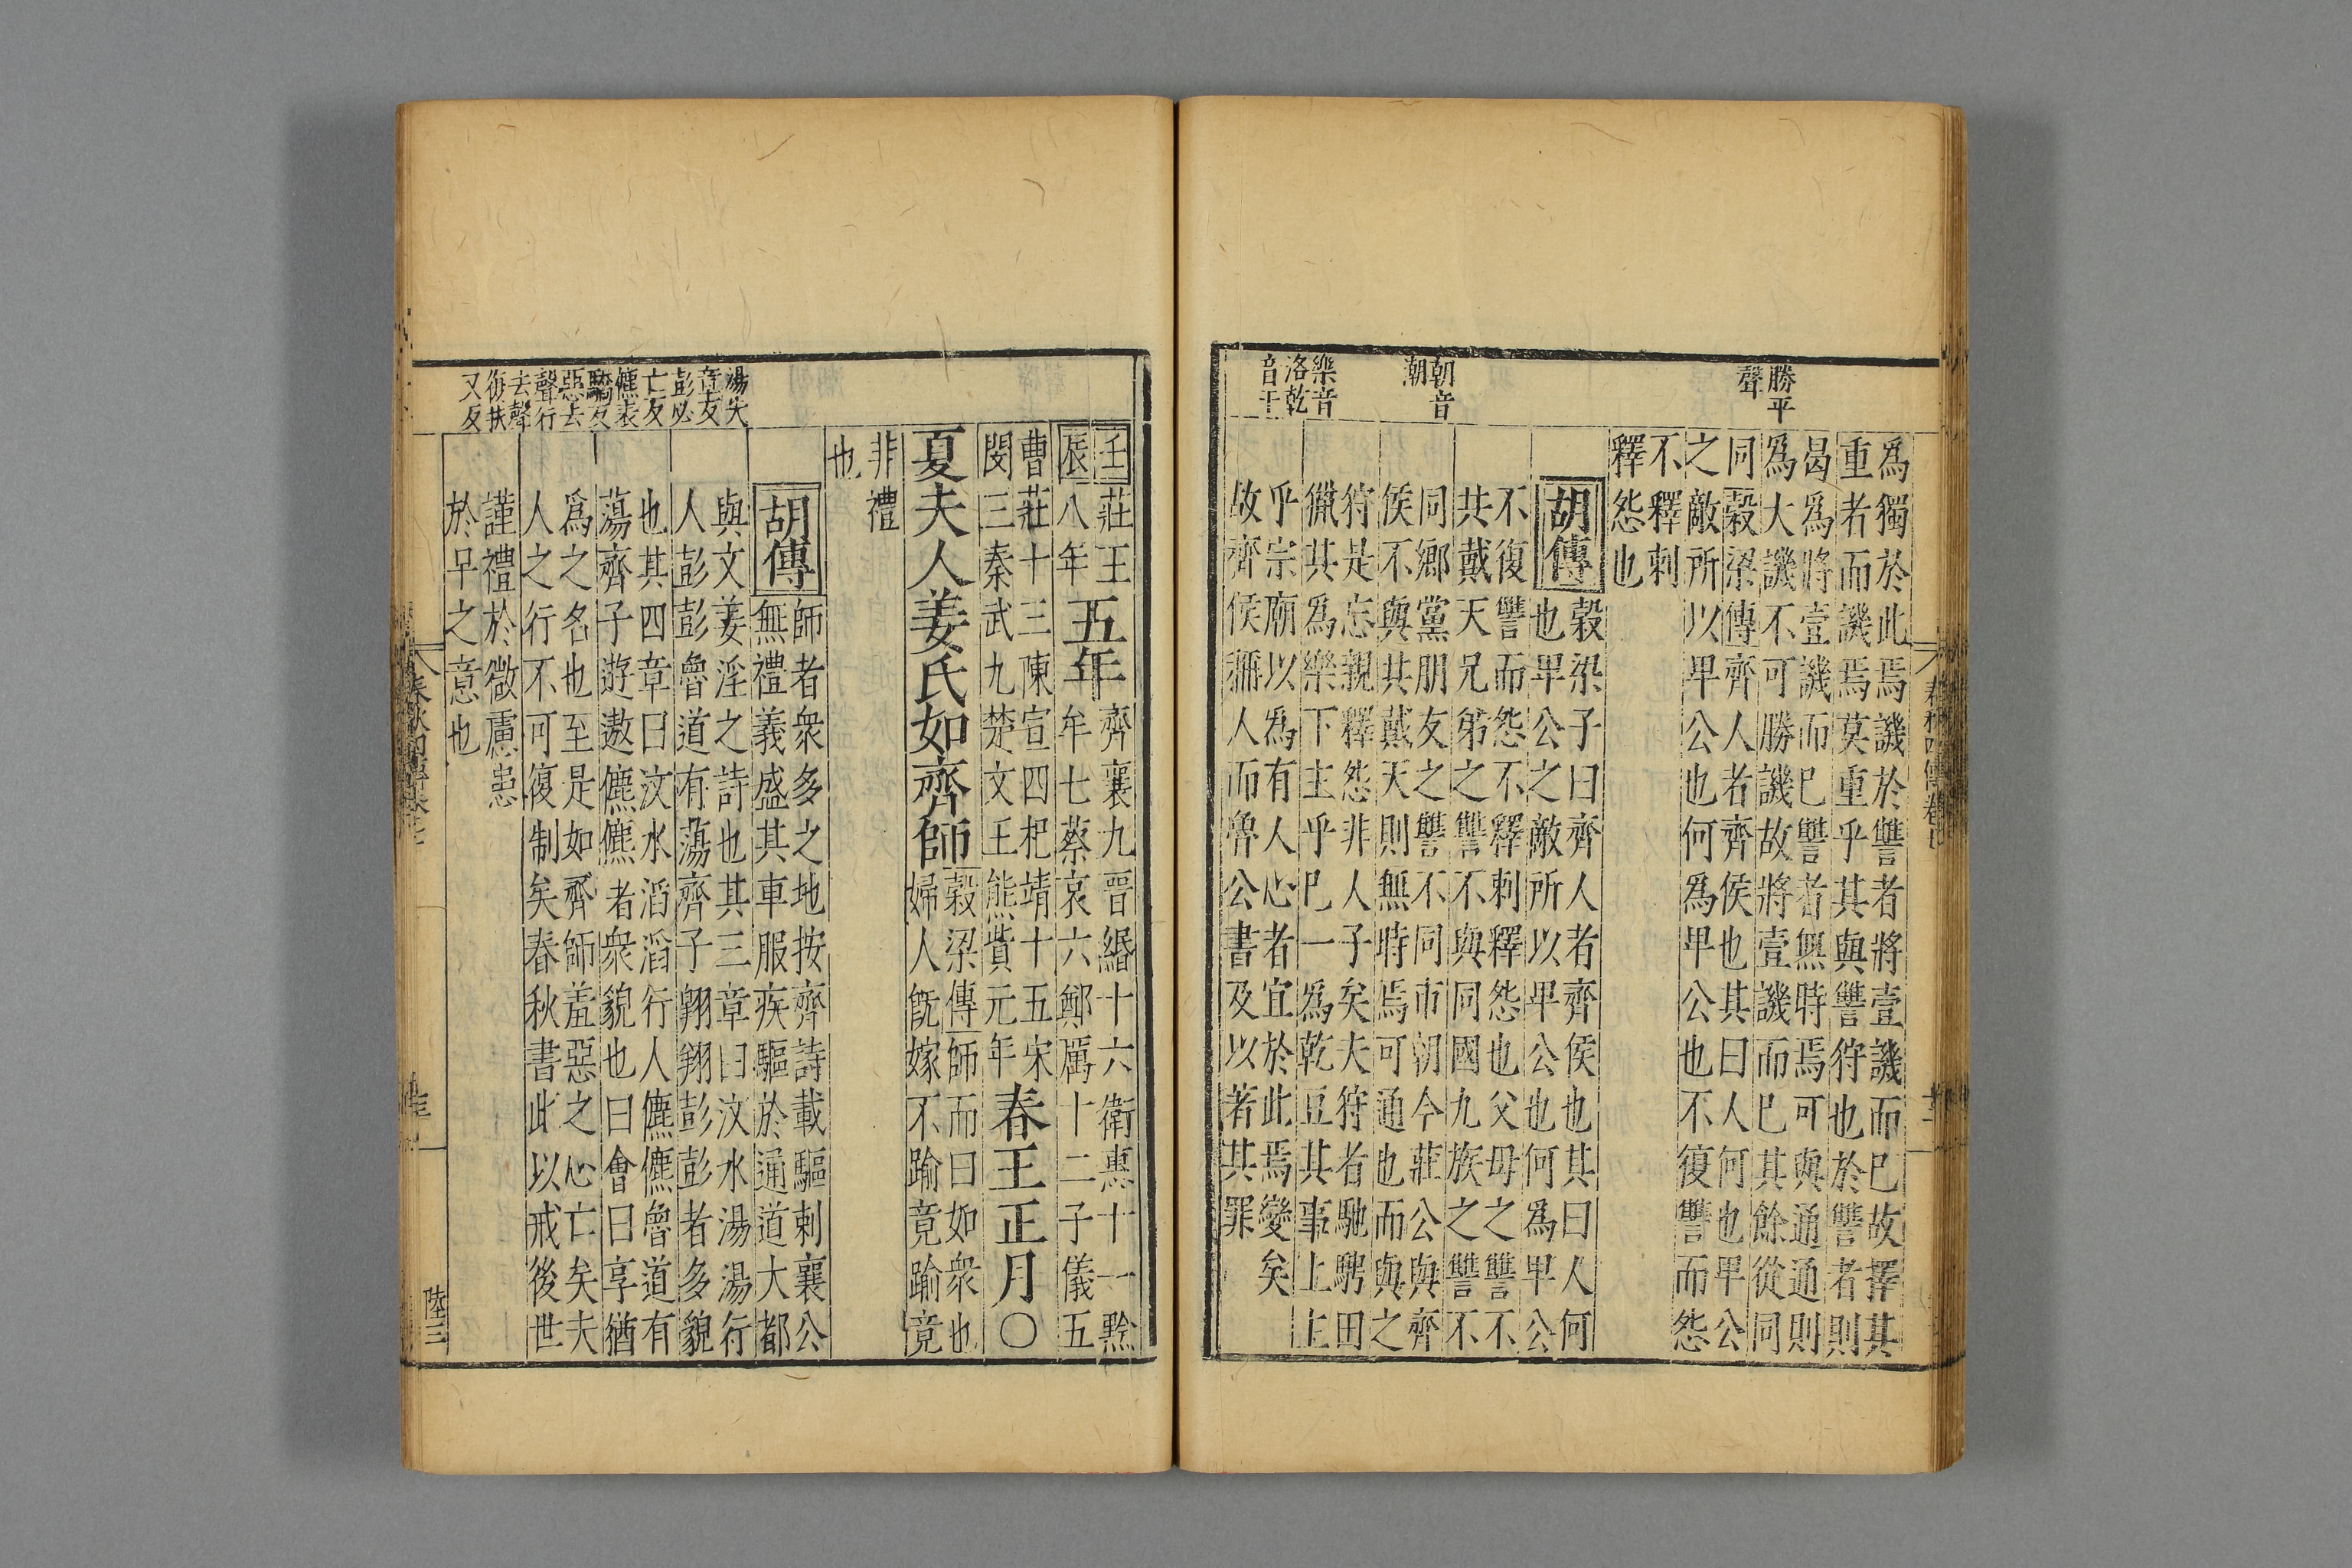 勝平
聲
朝音
潮
樂音
洛乾
音干
爲獨於此焉譏於讐者將壹譏而已故擇其
重者而譏焉莫重乎其與讐狩也於讐者則
曷爲將壹譏而已讐者無時焉可與通通則
爲大譏不可勝譏故將壹譏而已其餘從同
同穀梁傳齊人者齊侯也其曰人何也𤰞公
之敵所以𤰞公也何爲𤰞公也不復讐而怨
不釋刺
釋怨也
胡傳
穀梁子曰齊人者齊侯也其曰人何
也𤰞公之敵所以𤰞公也何爲𤰞公
不復讐而怨不釋刺釋怨也父母之讐不
共戴天兄弟之讐不與同國九族之讐不
同鄉黨朋友之讐不同市朝今莊公與齊
侯不與共戴天則無時焉可通也而與之
狩是忘親釋怨非人子矣夫狩者馳騁田
獵其爲樂下主乎已一爲乾豆其事上主
乎宗廟以爲有人心者宜於此焉變矣
故齊侯稱人而魯公書及以著其罪
湯失
章友
彭必
亡友
儦表
驕友
惡去
聲行
去聲
復扶
又反
壬辰
莊王
八年
五年
齊襄九晋緡十六衛惠十一黔
牟七蔡哀六鄭厲十二子儀五
曹莊十三陳宣四杞靖十五宋
閔三秦武九楚文王熊貲元年
春王正月○
夏夫人姜氏如齊師
穀梁傳師而曰如衆也
婦人旣嫁不踰竟踰竟
非禮
也
胡傳
師者衆多之地按齊詩載驅刺襄公
無禮義盛其車服疾驅於通道大都
與文姜淫之詩也其三章曰汶水湯湯行
人彭彭魯道有蕩齊子翺翔彭彭者多貌
也其四章曰汶水滔滔行人儦儦魯道有
蕩齊子遊遨儦儦者衆貌也曰會曰享猶
爲之名也至是如齊師羞惡之心亡矣夫
人之行不可復制矣春秋書此以戒後世
謹禮於微慮患
於早之意也
陸三